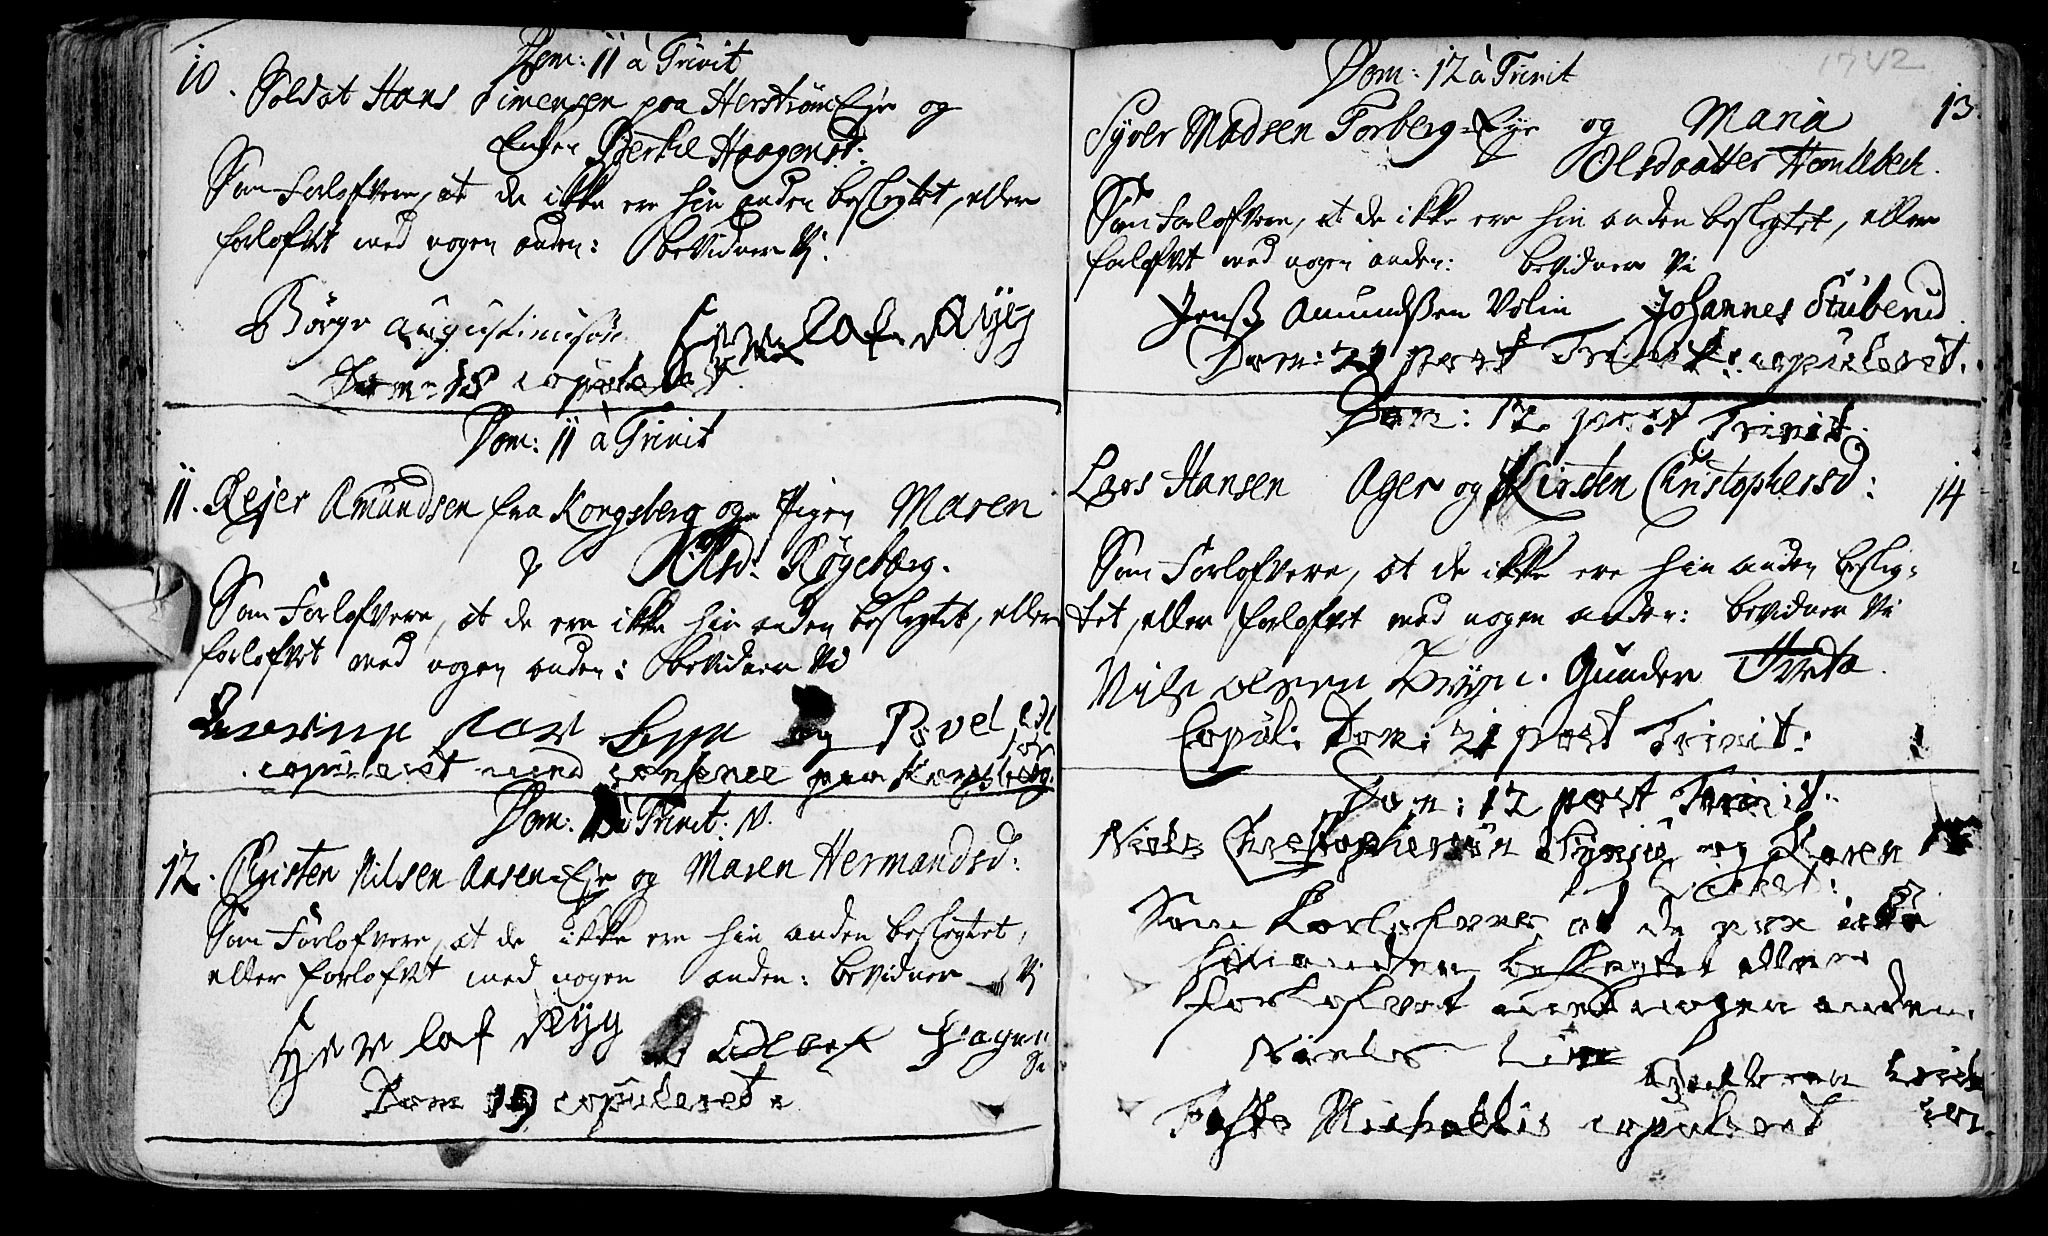 Dom: 11 à Trinit
10. Soldat Hans Simensen paa Herstrøm Eje og
Enken Berthe Haagensd:
Som Forlofvere, at de ikke ere hin anden beslegtet, eller
forlofvet med nogen anden: bevidner Vj.
Börge Augustinusøn Herlaf Ryg
Dom: 18 copuleret.
Dom: 11 à Trinit
11. Rejer Amundsen fra Kongsberg og Pigen Maren
Olsd: Røgeberg.
Som Forlofvere, at de ere ikke hin anden beslegtet, eller
forlofvet med nogen anden: bevidner Vi
og Povel
copuleret med consence paa Kongsberg.
Dom: à Trinit: N.
12. Christen Nilsen Aasen-Eje og Maren Hermandsd:
Som Forlofvere, at de ikke ere hin anden beslegtet,
eller forlofvet med nogen anden: bevidner Vj
Herlaf Ryg
Dom 19 copuleret.
1742
Dom: 12 à Trinit
Syver Madsen Forberg-Eye og Maria 13.
Olsdaatter Homlebech.
Som Forlofvere, at de ikke ere hin anden beslegtet, eller
forlofvet med nogen anden: bevidner Vi
Jenß Amundßen Volin Johannes Stuberud
Dom: 21 post Trinit: copuleret.
Dom: 12 post Trinit.
Lars Hansen Ager og Kirsten Christophersd: 14
Som Forlofvere, at de ikke ere hin anden beslig-
tet, eller forlofvet med nogen anden: bevidner Vi
Nils olsen Gunder Tveta.
Copul: Dom: 21 post Trinit:
Dom: 12 post Trinit:
Niels Christophersøn og Karen
Som Forlofvere at de ikke
hinanden beslegtet eller
forlofvet med nogen anden.
Niels
Festo Michaelis copuleret